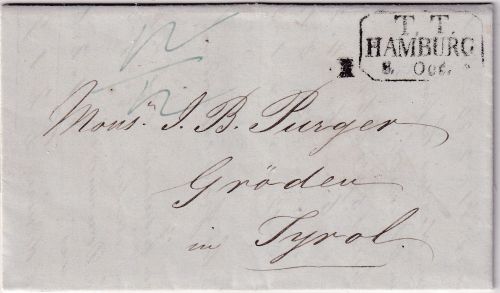 T. T.
HAMBURG
8. Oct.
12
12
Mons.r J. B. Purger
Gröden
in Tyrol.